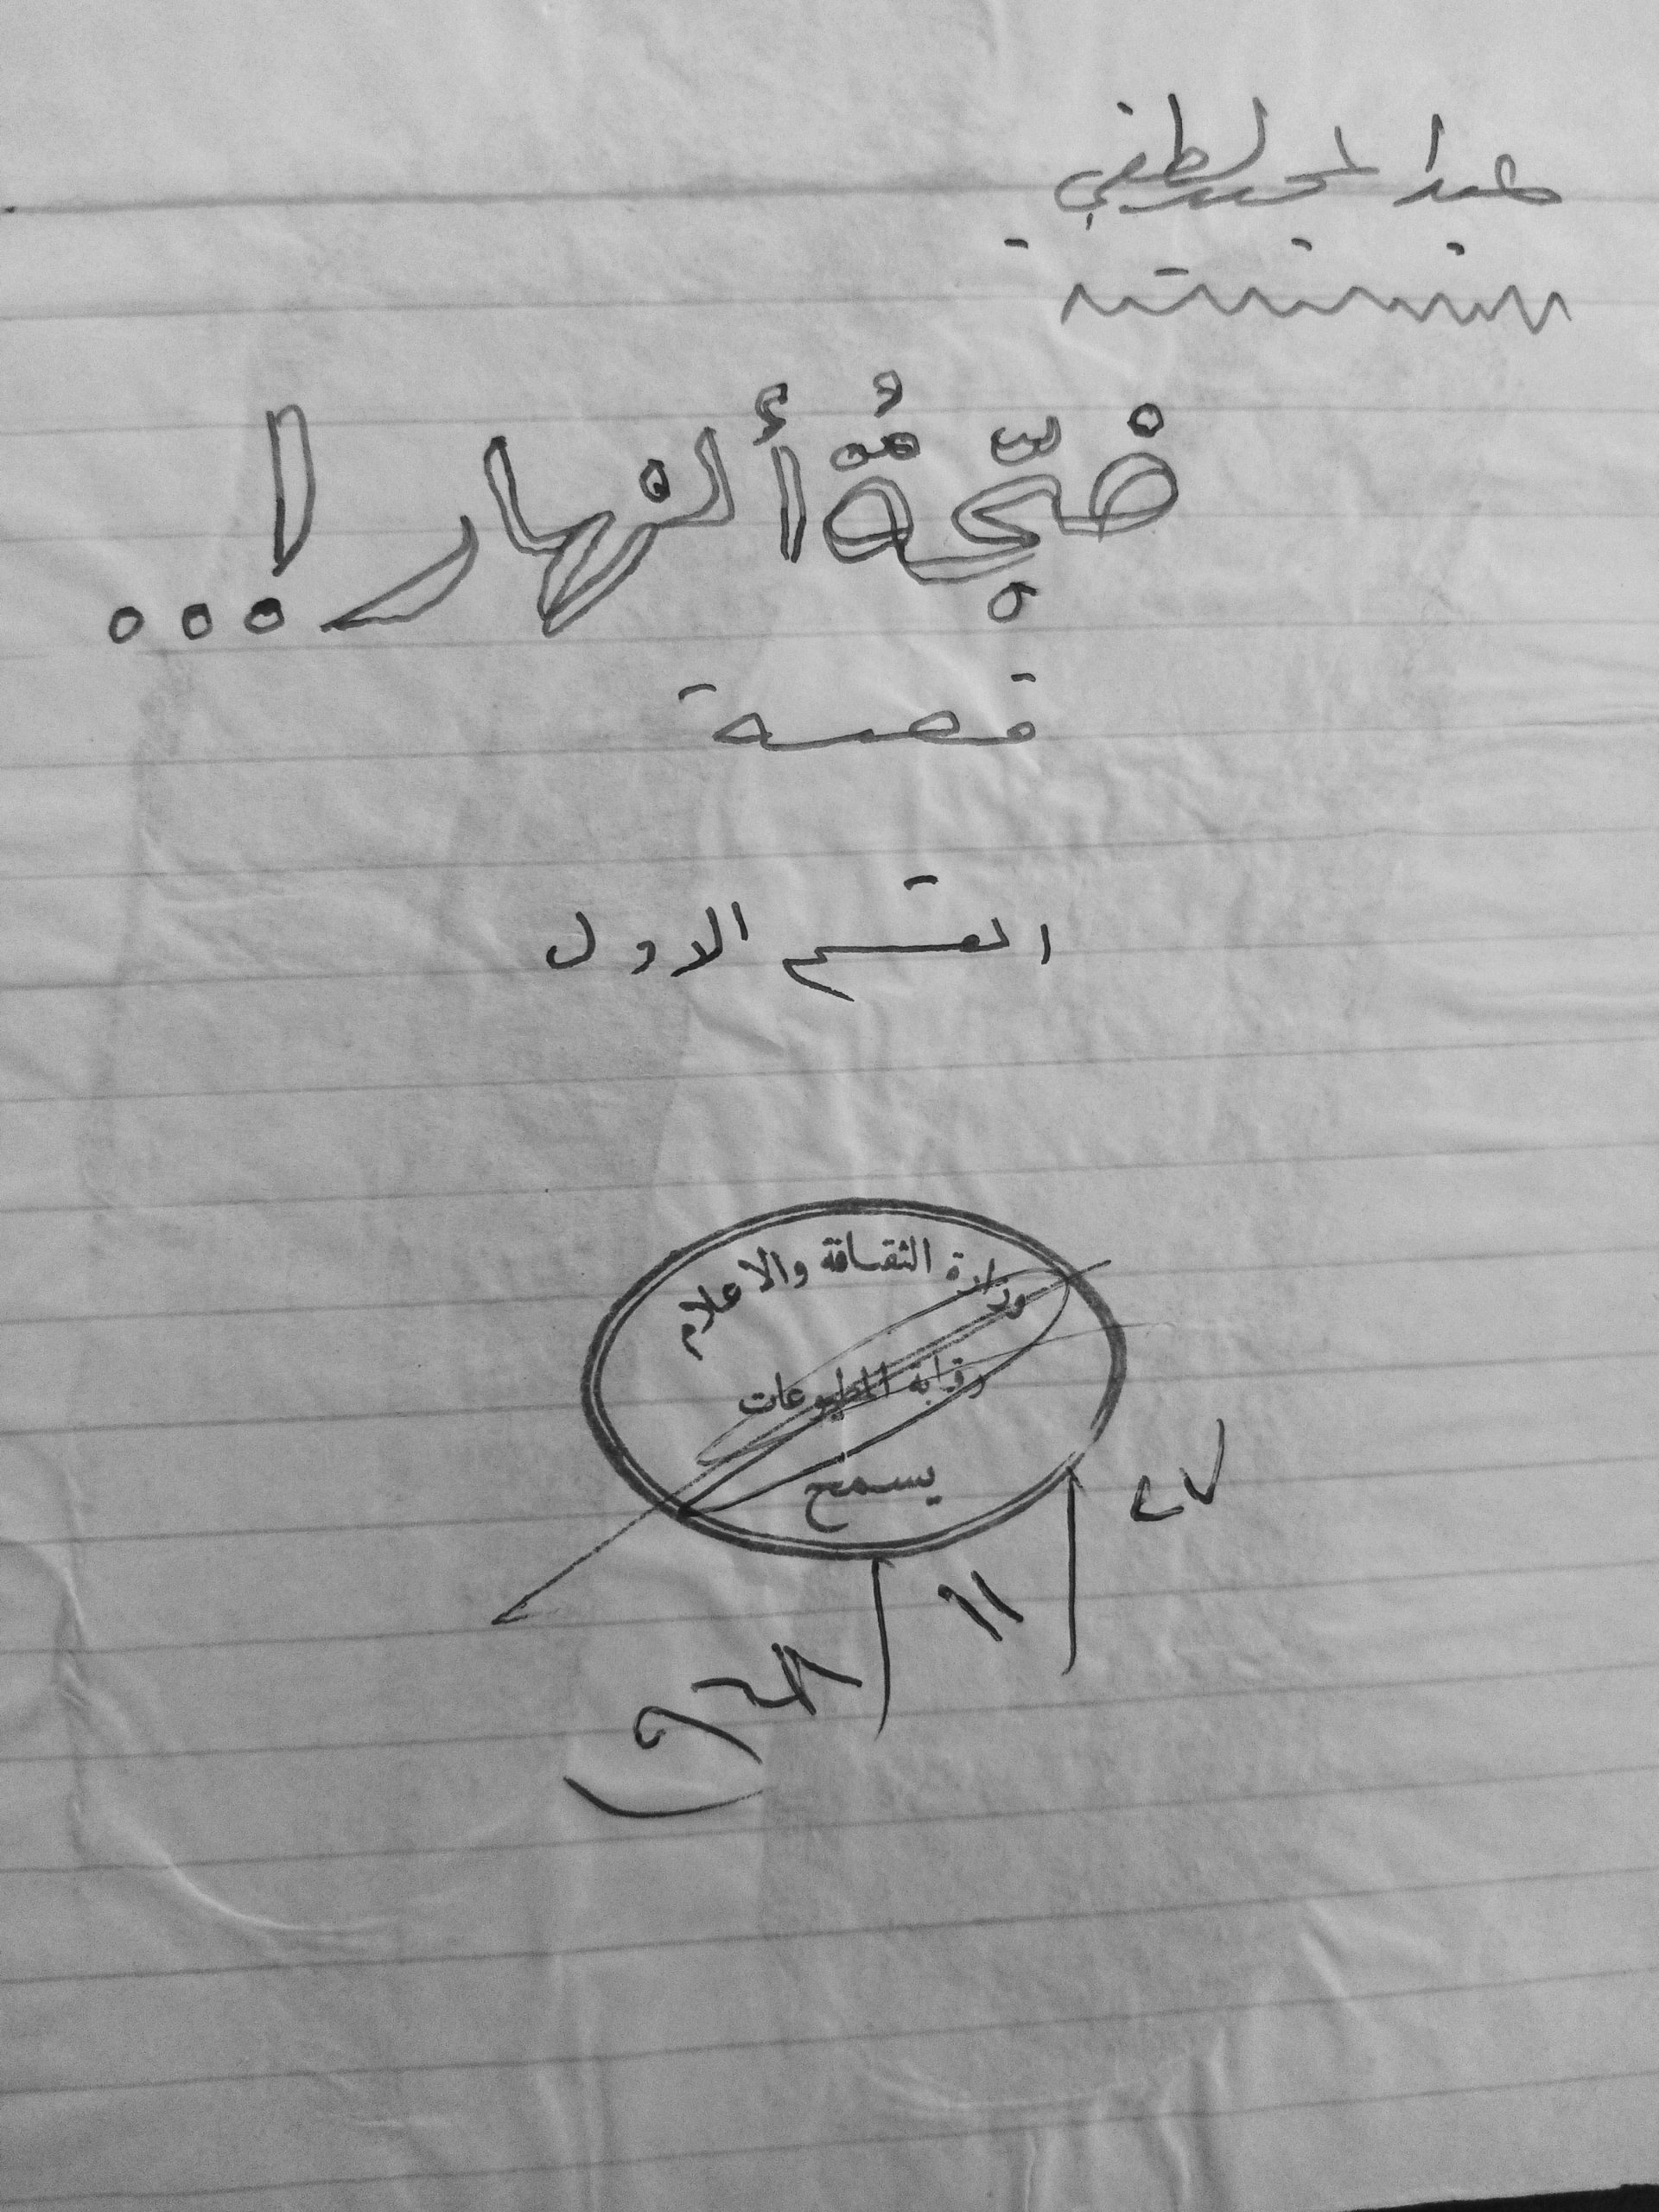 عبد المجيد لطفي
ضجّةُ ألنهار !...
قصة
القسم الاول
وزارة الثقافة والاعلام
رقابة المطبوعات
يسمح
٢٧ / ١١ /